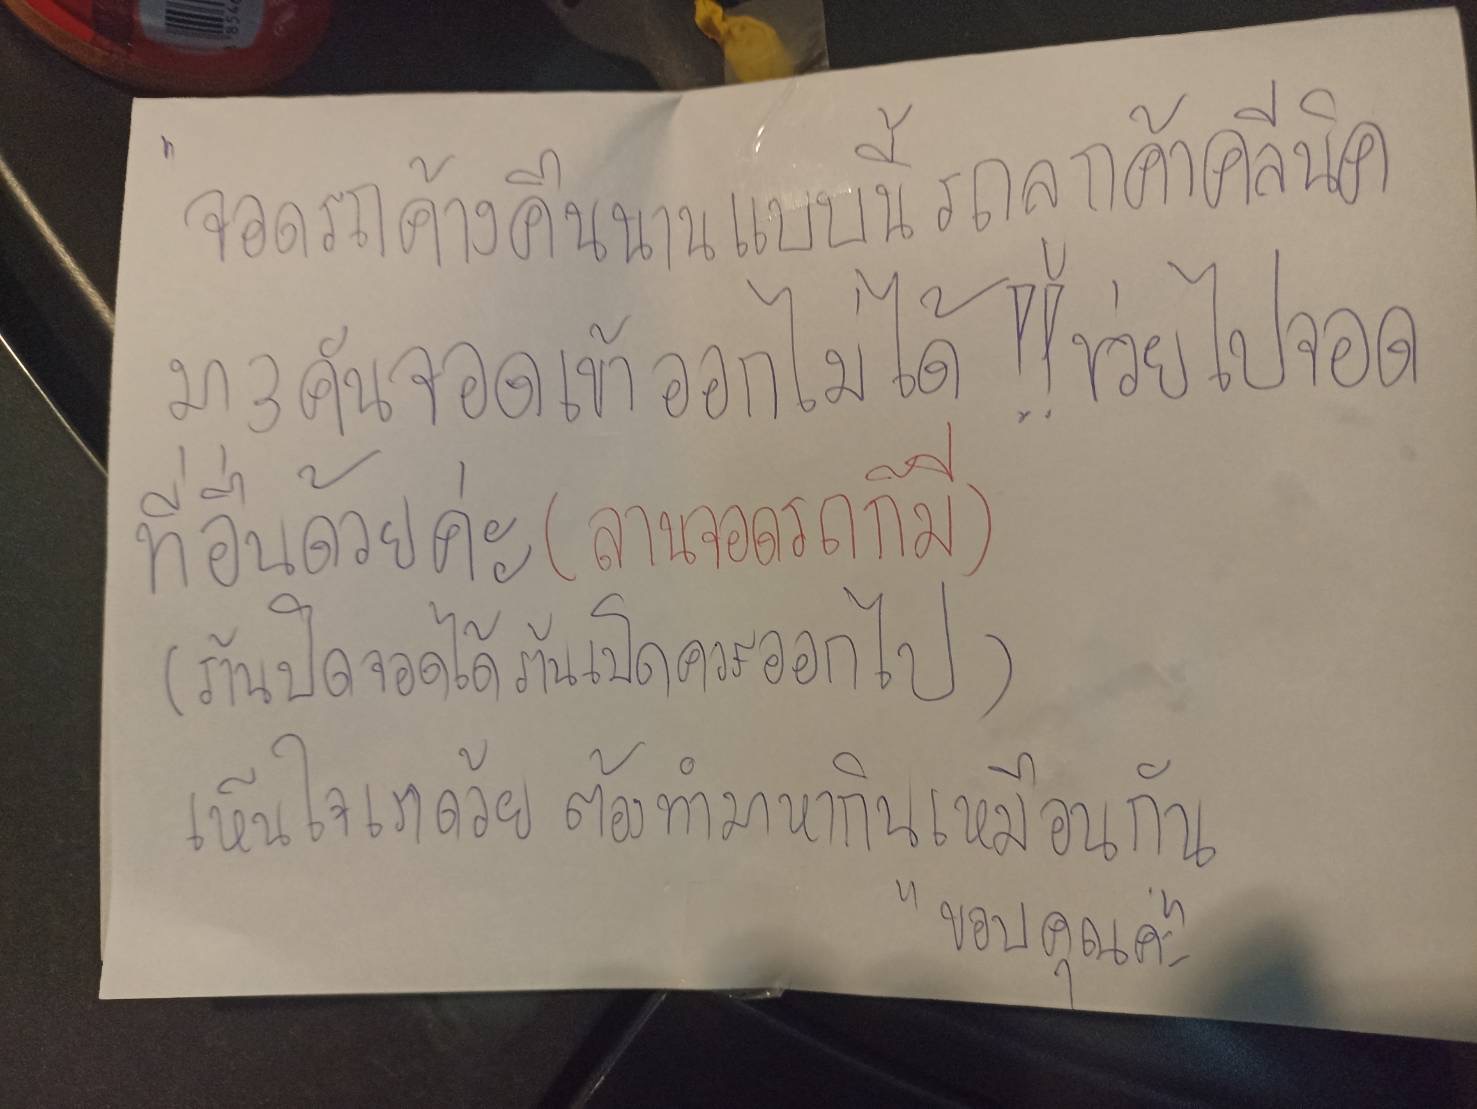 " จอดรถค้างคืนนานแบบนี้ รถลูกค้าคลีนิค
มา 3 คันจอดเข้าออกไม่ได้ !!! ช่วยไปจอด
ที่อื่นด้วยค่ะ (ลานจอดรถก็มี)
(ร้านปิดจอดได้ ร้านเปิดควรออกไป)
เห็นใจเราด้วย ต้องทำมาหากินเหมือนกัน
" ขอบคุณค่ะ "